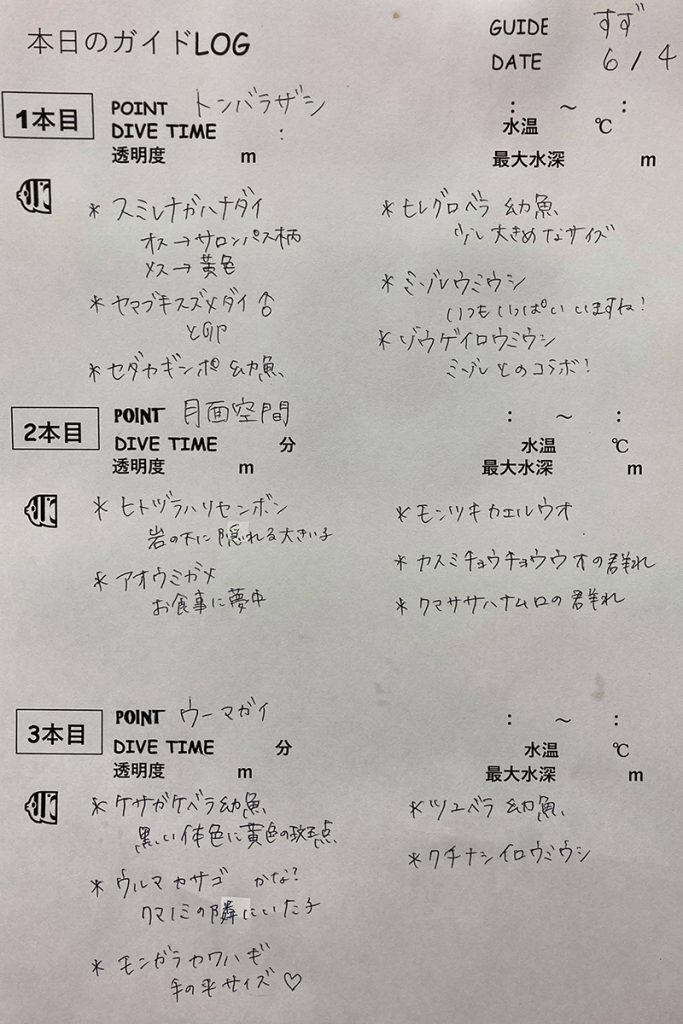 本日のガイドLOG
GUIDE すず
DATE 6/4
1本目
POINT トンバラザシ
DIVE TIME :
: ～ :
水温 ℃
透明度 m
最大水深 m
* スミレナガハナダイ
オス→サロンパス柄
メス→黄色
* ヤマブキスズメダイ♂
* セダカギンポ 幼魚
* ヒレグロベラ 幼魚
少し大きめなサイズ
* ミゾレウミウシ
いつもいっぱいいますね!
* ゾウゲイロウミウシ
ミゾレとのコラボ!
2本目
POINT 月面空間
DIVE TIME 分
: ～ :
水温 ℃
透明度 m
最大水深 m
* ヒトヅラハリセンボン
岩の下に隠れる大きい子
* アオウミガメ
お食事に夢中
* モンツキカエルウオ
* カスミチョウチョウウオの群れ
* クマササハナムロの群れ
3本目
POINT ウーマガイ
DIVE TIME 分
: ～ :
水温 ℃
透明度 m
最大水深 m
* ケサガケベラ幼魚
黒い体色に黄色の斑点
* ウルマカサゴ かな?
クマノミの隣にいた子
* モンガラカワハギ
手の平サイズ♡
* ツユベラ 幼魚
* クチナシイロウミウシ